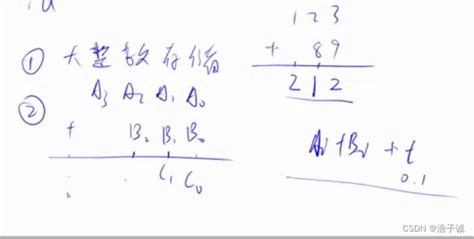 ① 大整数存储
② A₃ A₂ A₁ A₀
+ B₂ B₁ B₀
C₁ C₀
1 2 3
+ 89
2 1 2
Aᵢ + Bᵢ + t
0.1
CSDN @浩子诚